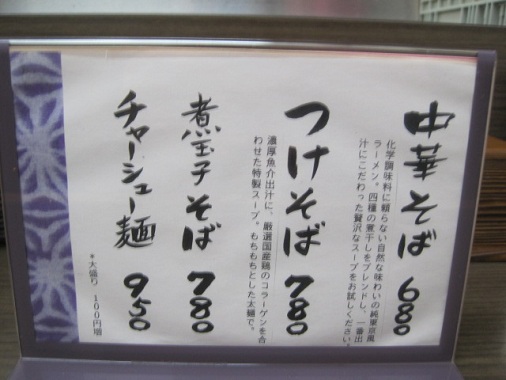 中華そば 680
化学調味料に頼らない自然な味わいの純東京風
ラーメン。四種の煮干しをブレンドし、一番出
汁にこだわった贅沢なスープをお試しください。
つけそば 780
濃厚魚介出汁に、厳選国産鶏のコラーゲンを合
わせた特製スープ。もちもちとした太麺で。
煮玉子そば 780
チャーシュー麺 950
*大盛り 100円増